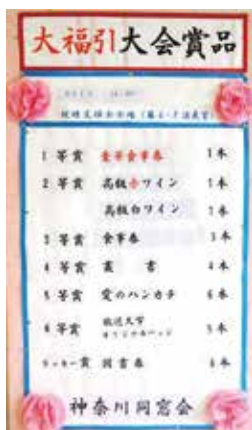 大福引大会賞品
1等賞 豪華食事券 1本
2等賞 高級赤ワイン 1本
高級白ワイン 1本
3等賞 食事券 3本
4等賞 叢書 4本
5等賞 愛のハンカチ 6本
6等賞 放送大学 5本
ラッキー賞 図書券
神奈川同窓会